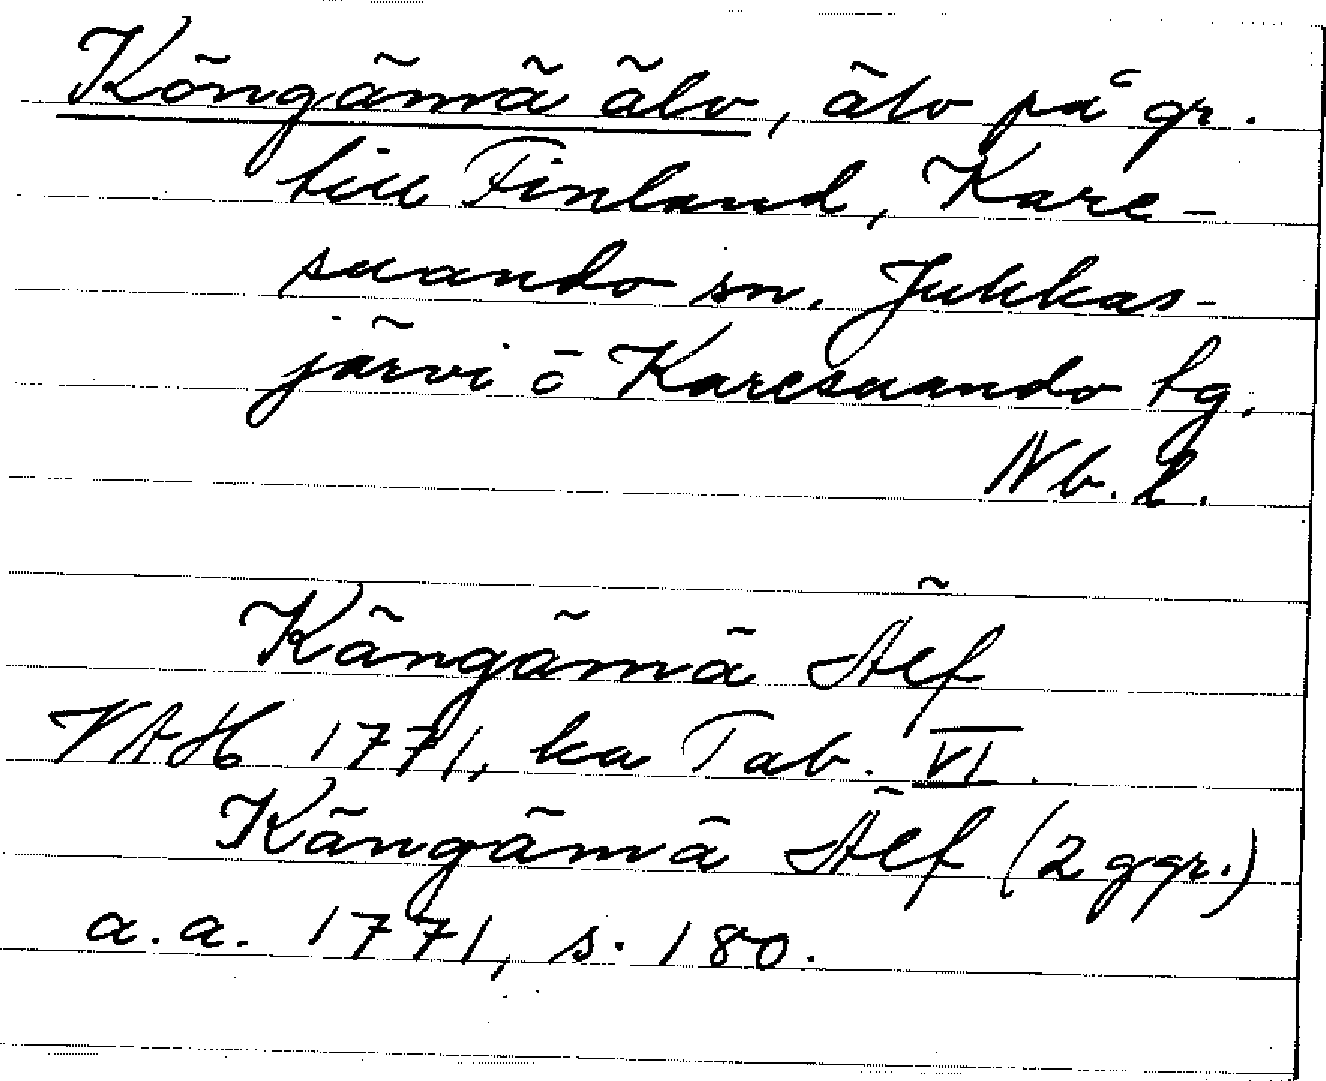 Köngämä älv, älv på gr.
till Finland, Kare-
suando sn. Jukkas-
järvi o Karesuando tg.
Nb. l.
Kängämä Älf
VAH 1771, ka Tab. VI.
Kängämä Älf (2 ggr.)
a.a. 1771, s. 180.